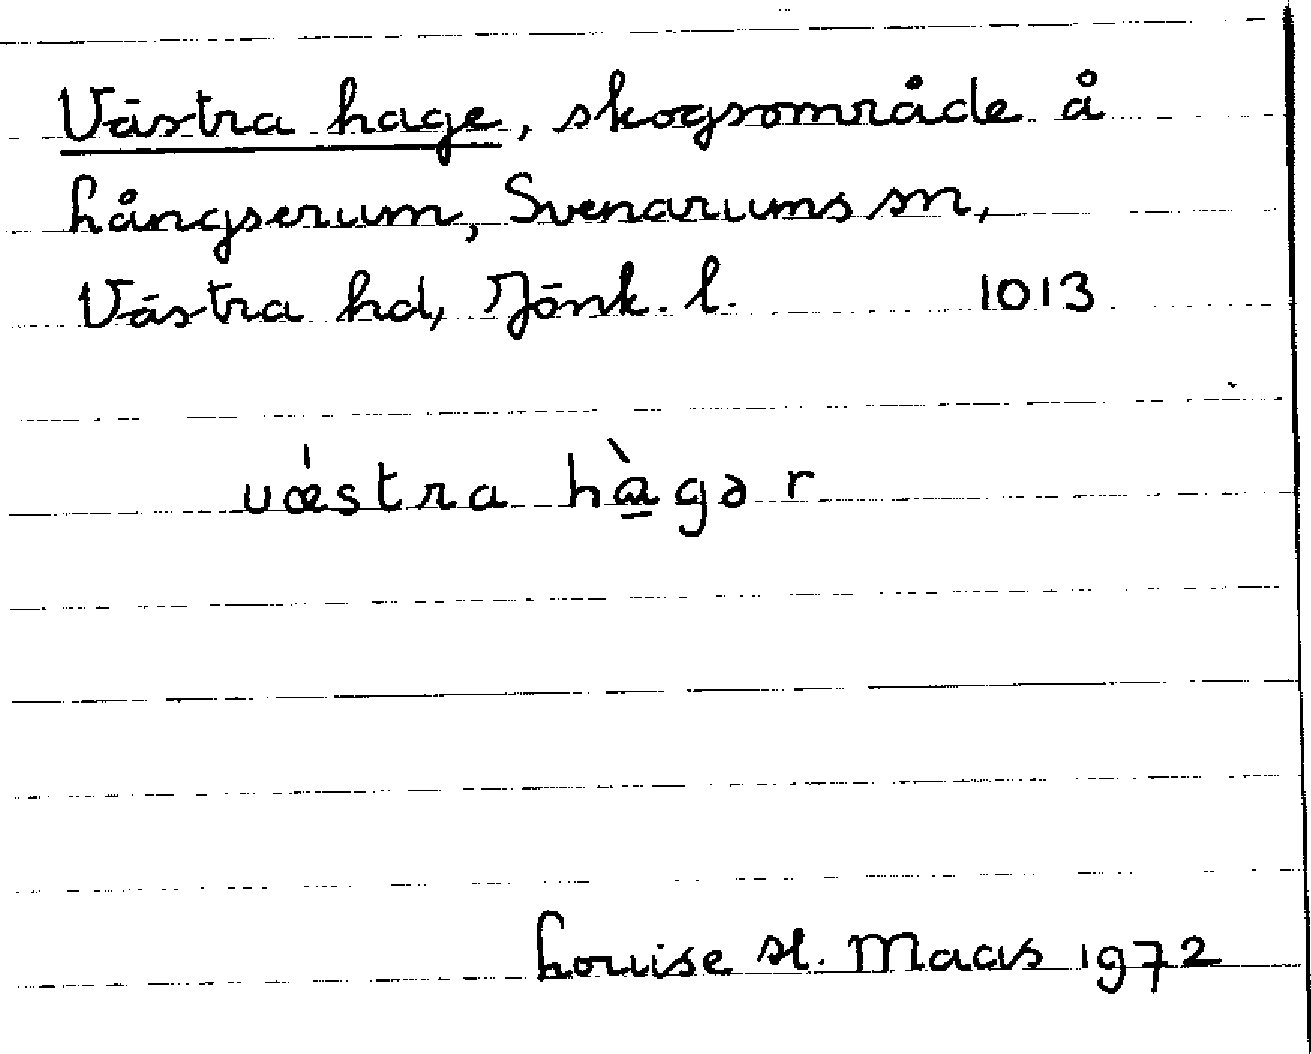 Västra hage, skogsområde å
Långserum, Svenarums sn,
Västra hd, Jönk. l. 1013
vǽstra hàgər
Louise H. Maas 1972